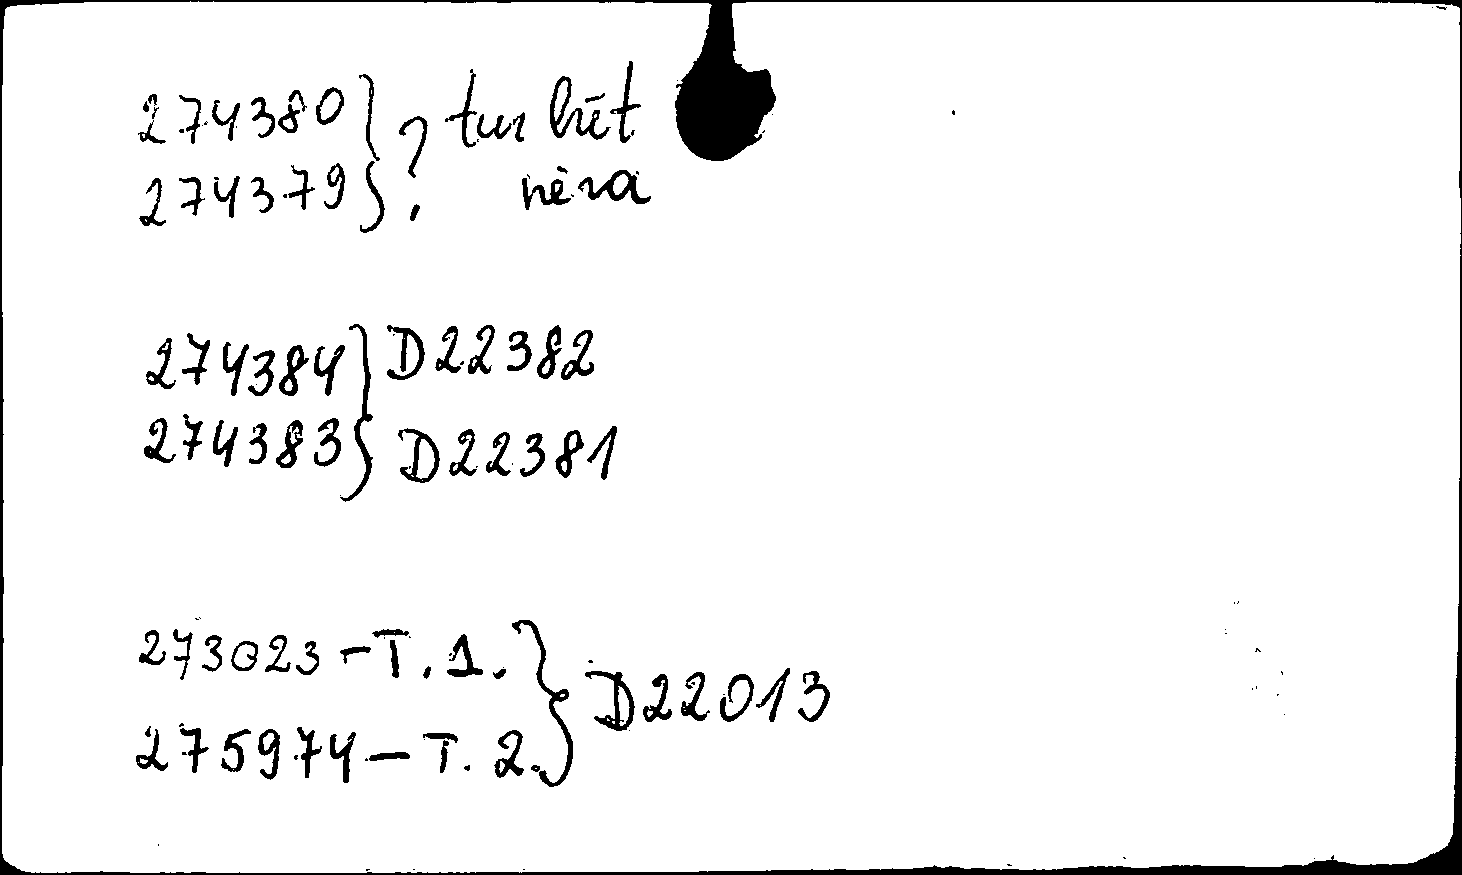 274380 } ? tur būt
274379 } nėra
274384 } D22382
274383 } D22381
273023 - T. 1. } D22013
275974 - T. 2. }